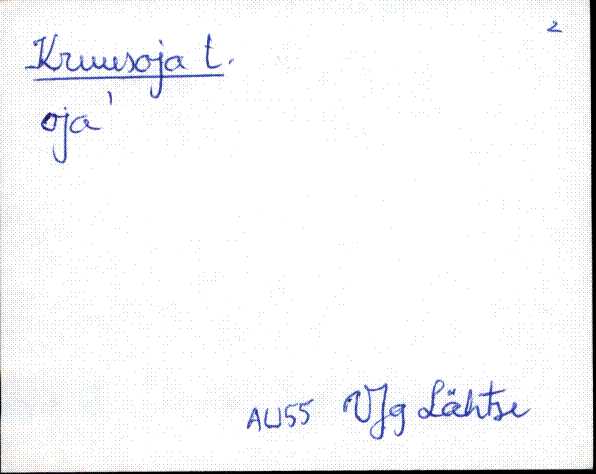 2
Kruusoja t.
oja'
AU55 VJg Lähtse